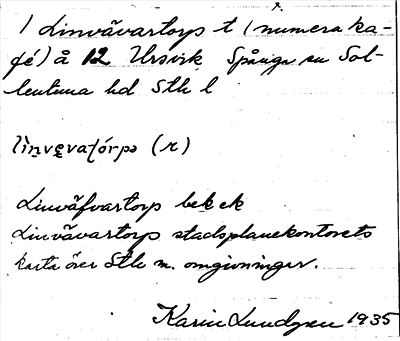 / Linvävartorp t (numera ka-
fé) å 12 Ursvik Spånga sn Sol-
lentuna hd Sthl l
lìṇvęvaʈórpə (r)
Linväfvartorp bek ek
Linvävartorp stadsplanekontorets
karta över Sthlm m. omgivningar.
Karin Lundgren 1935